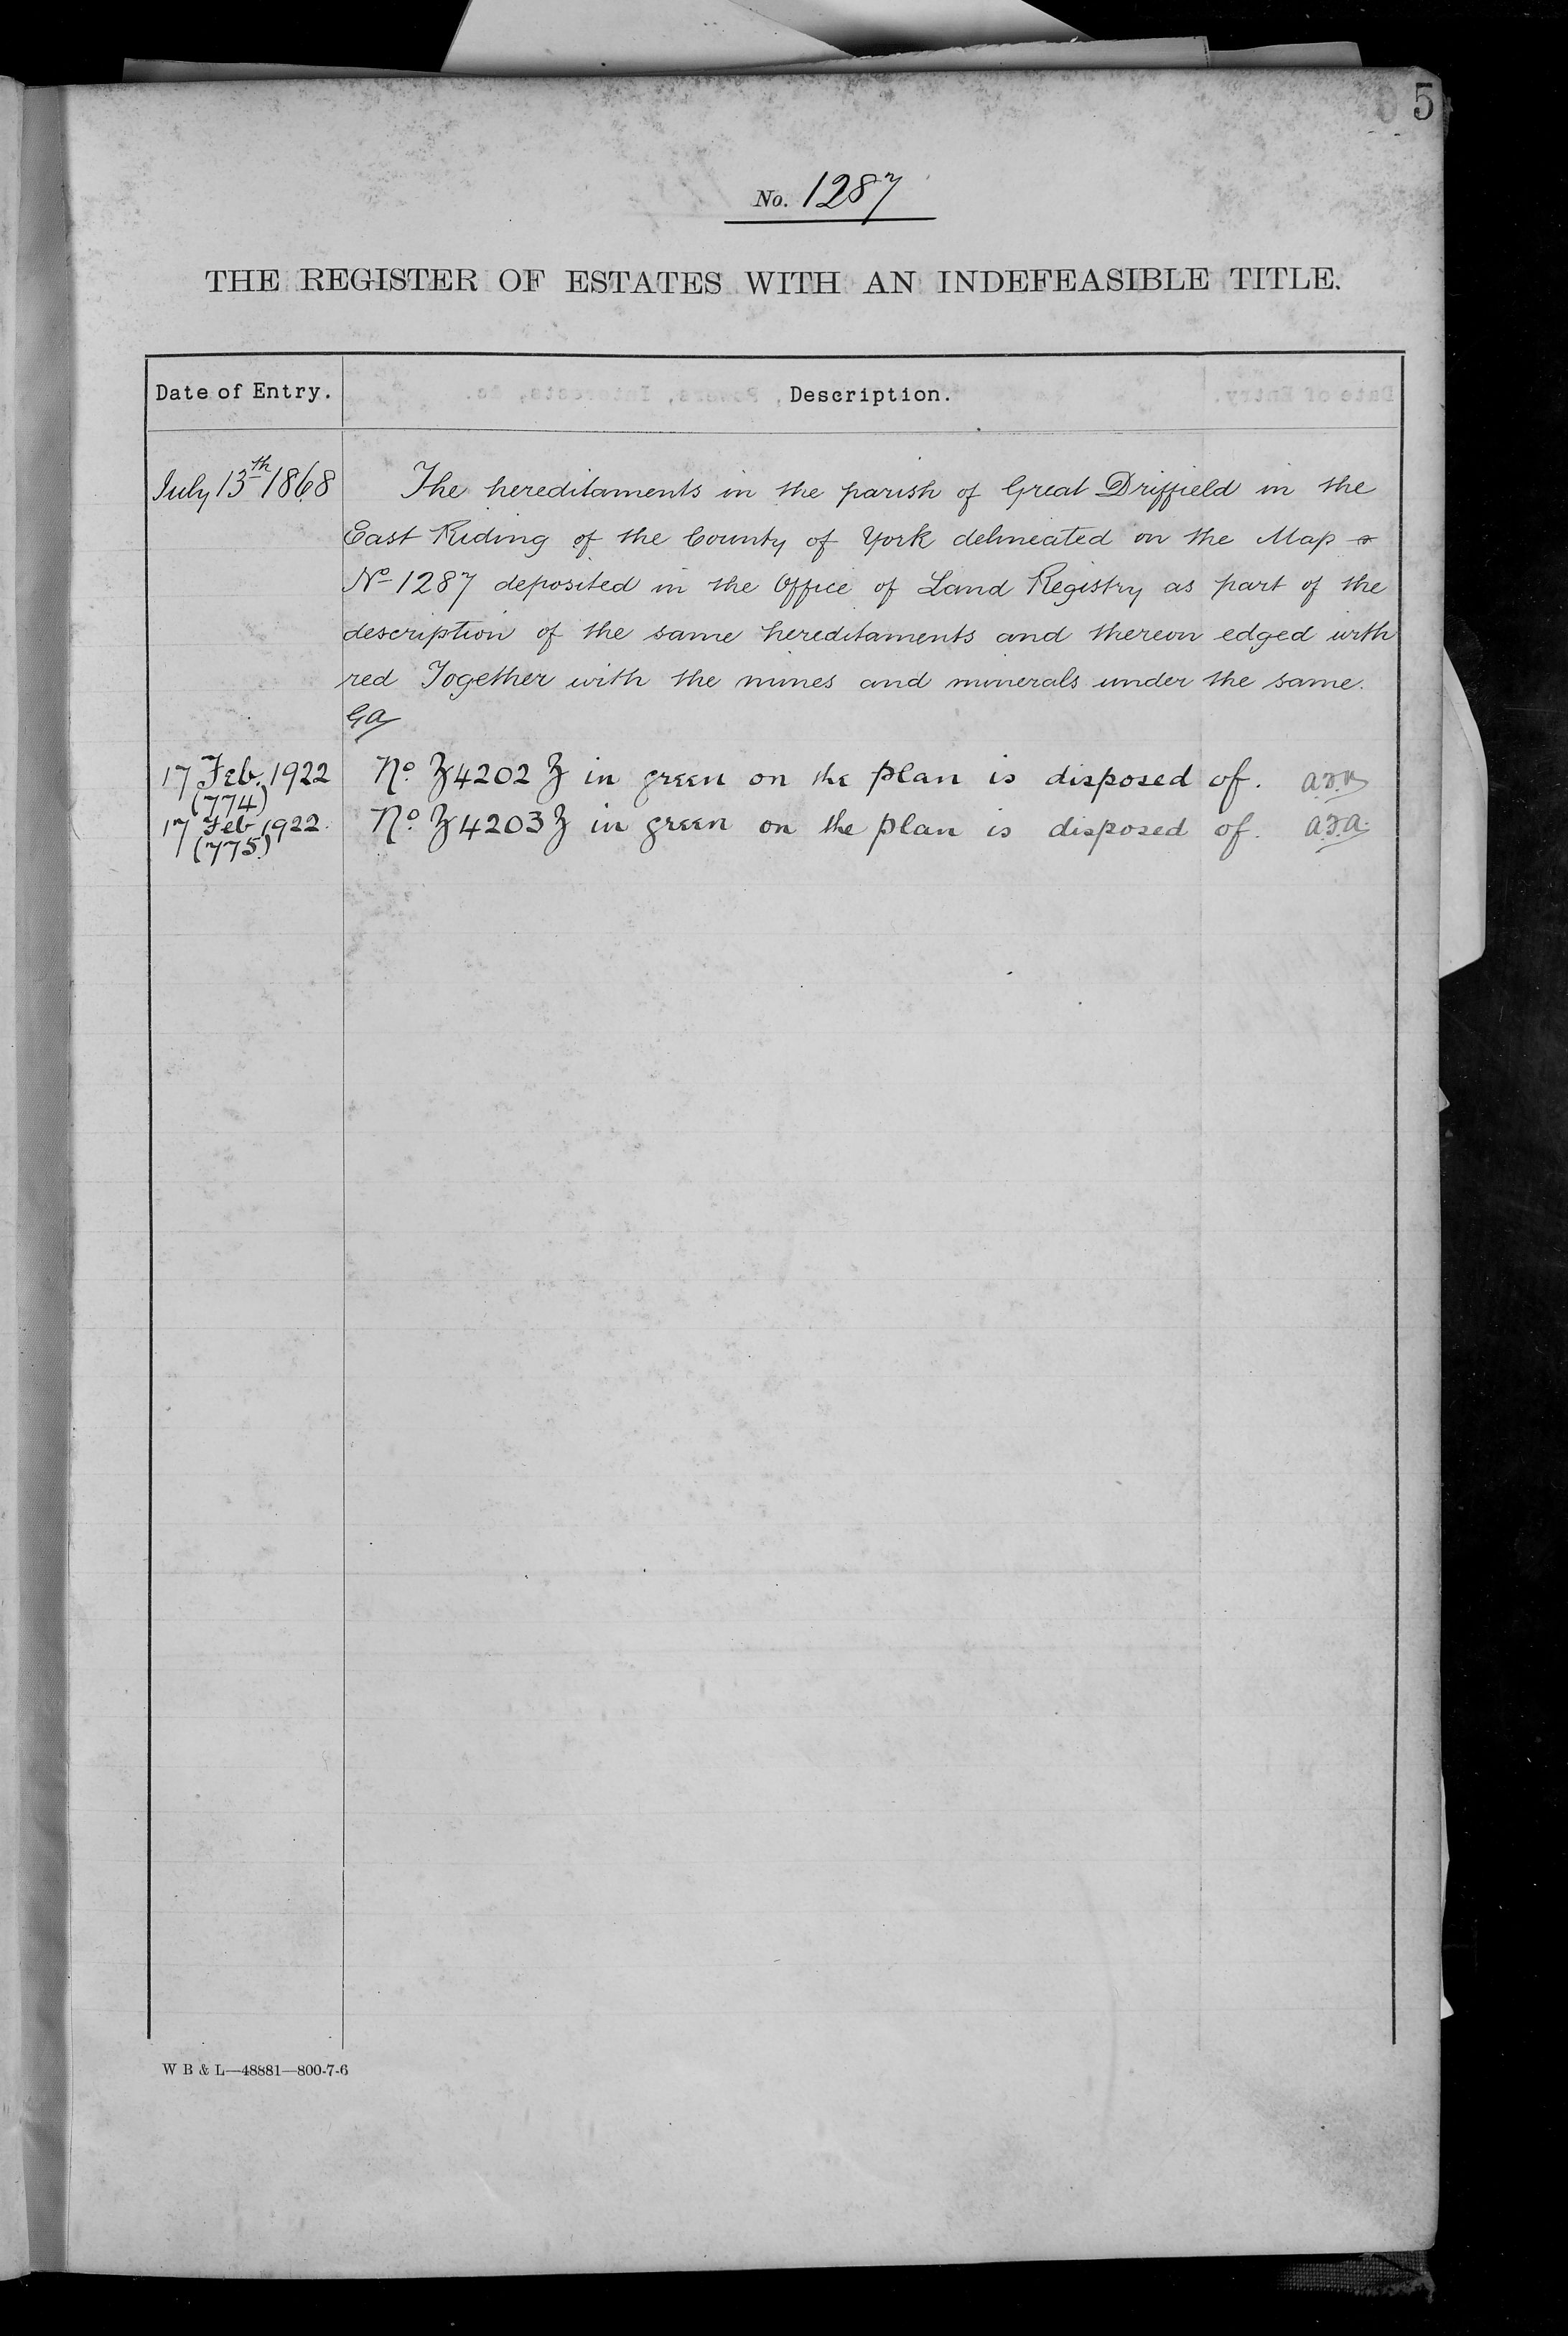 5
No. 1287
THE REGISTER OF ESTATES WITH AN INDEFEASIBLE TITLE.
Date of Entry.
Description.
July 13th 1868
The hereditaments in the parish of Great Driffield in the
East Riding of the County of York delineated on the Map
No 1287 deposited in the Office of Land Registry as part of the
description of the same hereditaments and thereon edged with
red Together with the mines and minerals under the same.
GA
17 Feb. 1922 No. Z4202Z in green on the plan is disposed of.
(774)
17 Feb 1922. No. Z4203Z in green on the plan is disposed of.
(775)
W B & L—48881—800-7-6